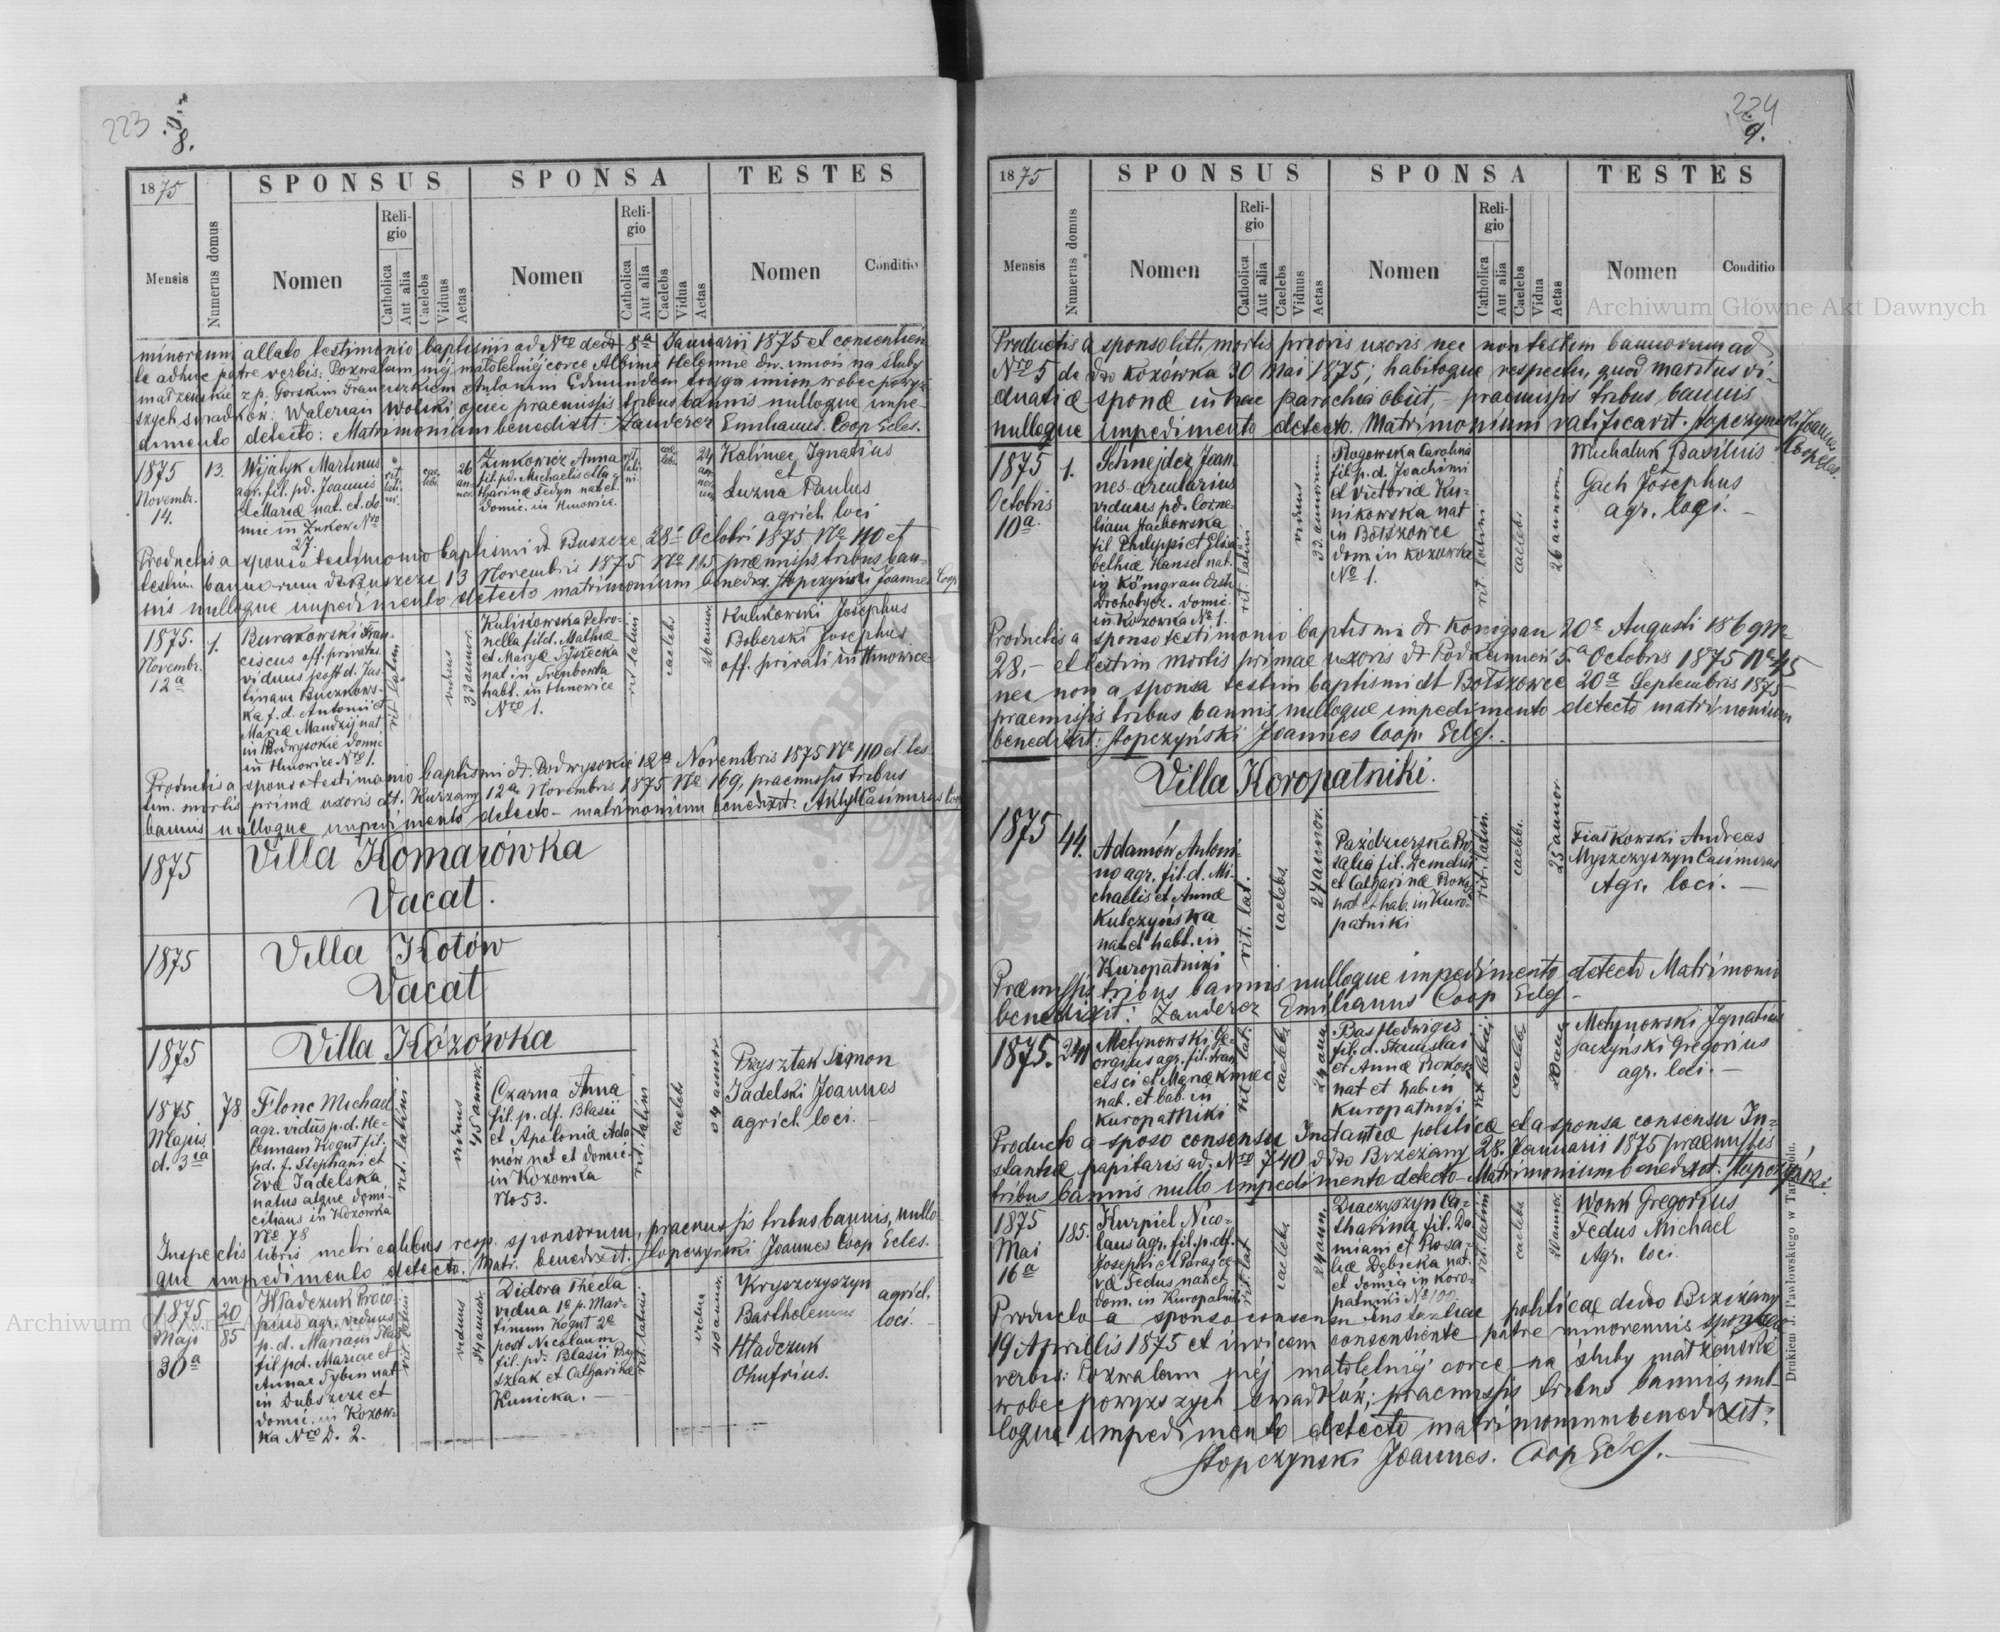 223
8.
1875
SPONSUS
SPONSA
TESTES
Mensis
Numerus domus
Nomen
Religio
Catholica
Aut alia
Caelebs
Viduus
Aetas
Nomen
Religio
Catholica
Aut alia
Caelebs
Vidua
Aetas
Nomen
Conditio
minorenni allato testimonio baptismi ad Nro 8a Januarii 1875 et consentien
te adhuc patre verbis: Pozwalam méj małoletniéj corce Albinie Helennie na śluby
małżenskie z p. Gorskim Franciszkiem Antonim Edmundem wobec powyż
szych swiadków: Waleryan Wolski ojciec praemissis tribus bannis nulloque impe
dimento detecto: Matrimonium benedixit: Zauderer Emilianus Coop Ecles.
1875
Novembr.
14.
13.
Wijatyk Martinus
agr. fil. pd. Joannis
et Mariæ nat. et do
mic in Żukow Nro
27.
rit. latini.
caelebs
26 annor.
Zinkowicz Anna
fil. pd. Michaelis et Ca
tharinæ Fedyn nat et
domic. in Hinowice.
rit. latini.
caelebs
24 annorum
Kaliniec Ignatius
et
Luzna Paulus
agricl. loci
Productis a sponso testimonio baptismi dt Buszcze 28a Octobri 1875 No 110 et
testim. bannorum dt Buszcze 13 Novembris 1875 No 115 præmissis tribus ban-
nis nulloque impedimento detecto matrimonium benedix. Stopczyński Joannes Coop.
1875.
Novembr.
12a
1.
Burakowski Fran-
ciscus off. privatus
viduus post d. Jus-
tinam Buczkows-
ka f. d. Antonii et
Mariæ Mandzij nat.
in Podwysokie domic
in Hinowice Nro 1.
rit latini
viduus
33 annor.
Kulikowska Petro-
nella fil d. Mathiæ
et Maryæ Tyszecka
nat in Trembowla
habt. in Hinowice
Nro 1.
rit latini
caelebs
26 annor.
Kulikowski Josephus
Boberski Josephus
off. privati in Hinowice
Productis a sponso testimonio baptismi dt. Podwysokie 12a Novembris 1875 No 110 et tes
tim. mortis primæ uxoris dt. Kurzany 12a Novembris 1875 No 169, præmissis tribus
bannis nulloque impedimento detecto – matrimonium benedixit: Casimirus Coo
1875
Villa Komarówka
Vacat.
1875
Villa Kotów
Vacat
1875
Villa Kózówka
1875
Majus
d. 3tia
78
Flonc Michael
agr. vidus p.d. He-
lennam Kogut fil.
pd. f. Stephani et
Eva Jadelska
natus atque domi-
cilians in Kozówka
No 78
rit. latini
viduus
45 annor.
Czarna Anna
fil. p. df. Blasii
et Apoloniæ Ada
mów nat et domic-
in Kozowka
No 53.
rit. latini
caelebs
34 annor.
Przysztak Simon
Jadelski Joannes
agricl. loci.
Inspectis libris metricalibus resp. sponsorum, praemissis tribus bannis, nullo-
que impedimento detecto. Matr. benedixit. Stopczyński Joannes Coop Ecles.
1875
Maji
30a
20
85
Hładczuk Proco-
pius agr. viduus
p. d. Mariam
fil pd. Mariae et
Annae Tybin nat
in Dubszcze et
domic. in Kozow-
ka Nro D. 2.
rit latini
viduus
54 annor.
Didora Thecla
vidua 1o p. Mar-
tinum Kogut 2o
post Nicolaum
fil. pd. Blasii Przy
sztak et Catharinæ
Kunicka.
rit. latini
vidua
40 annor.
Kryszczyszyn
Bartholemeus
Hładczuk
Onufrius.
agricl.
loci.
224
9.
1875
SPONSUS
SPONSA
TESTES
Mensis
Numerus domus
Nomen
Religio
Catholica
Aut alia
Caelebs
Viduus
Aetas
Nomen
Religio
Catholica
Aut alia
Caelebs
Vidua
Aetas
Nomen
Conditio
Productis a sponso litt. mortis prioris uxoris nec non testim bannorum ad
Nro 5 de dto Kozówka 30 Mai 1875; habitoque respectu, quod maritus vi-
duatæ sponæ in hac parochia obiit, – praemissis tribus bannis
nulloque impedimento detecto. Matrimonium ratificavit. Stopczynski Joannes
Coop Ecles.
1875
Octobris
10a
1.
Schnejder Joan-
nes – arcularius
viduus pd. Corne-
liam Hachowska
fil Philippi et Elisa
bethæ Hansel nat.
in Königrau distr.
Drohobycz. domic.
in Kozowka No 1.
rit. latini
viduus
33 annorum
Rogowska Carolina
fil p. d. Joachimi
et Victoriæ Ku-
nikowska nat
in Botszowce
dom in Kozowka
No 1.
rit latini
caelebs
26 annorum
Michaluk Basilius
Gach Josephus
agr. loci. –
Productis a sponso testimonio baptismi dt Konigsau 20a Augusti 1869 No
28, – et testim mortis primae uxoris dt Podkamień 5a Octobris 1875 No 45
nec non a sponsa testim baptismi dt Botszowce 20a Septembris 1875
praemissis tribus bannis nulloque impedimento detecto matrimonium
benedixit: Stopczyński Joannes Coop. Ecles.
Villa Koropatniki.
1875
44.
Adamów Antoni-
no agr. fil. d. Mi-
chaelis et Annæ
Kulczyńska
nat et habt. in
Kuropatniki
rit. lat.
caelebs
27 annor.
Pazdzierska Ro
salia fil. Demetri
et Catharinæ
nat et hab. in Kuro-
patniki
rit. latin.
caelebs.
25 annor.
Fiałkowski Andreas
Myszczyszyn Casimirus
Agr. loci. –
Præmissis tribus bannis nulloque impedimento detecto Matrimonio
benedixit: Zauderer Emilianus Coop Ecles –
1875.
241
Metynowski Ge-
orgius agr. fil. Fran
cisci et Mariæ Kmiec
nat. et hab. in
Kuropatniki
rit lat.
caelebs
24 ann
Bas Hedwigis
fil. d. Stanislai
et Annæ
nat et hab. in
Kuropatniki
rit latini
caelebs
20 ann
Metynowski Ignatius
Jaczyński Gregorius
agr. loci. –
Producto a sposo consensu Instantiæ politicæ et a sponsa consensu In-
stantiæ papilaris ad. Nro 740 ddto Brzeżany 28. Januarii 1875 præmissis
tribus bannis nullo impedimento detecto – Matrimonium benedixit. Stopczyński.
1875
Mai
16a
185.
Kurpiel Nico-
laus agr. fil. p. df.
Josephi et Parasce-
væ Fedus nat et
dom. in Kuropatniki
rit. lat
caelebs
24 ann.
Diaczyszyn Ca-
tharina fil. Da-
miani et Rosa-
liæ Dębicka nat.
et domic. in Koro-
patniki No 100.
rit. latini
caelebs
Wonk Gregorius
Fedus Michael
Agr. loci.
Producto a sponso consensu instantiae politicae de dto Brzeżany
19 Aprillis 1875 et invicem consentiente patre minorennis sponsae
verbis: Pozwalam méj małoletniéj corce na śluby małżeńskie
wobec powyższych swiadków; praemissis tribus bannis, nul-
loque impedimento detecto matrimonium benedixit:
Stopczynski Joannes. Coop Ecles. –
Drukiem J. Pawłowskiego w Tarnopolu.
Archiwum Główne Akt Dawnych